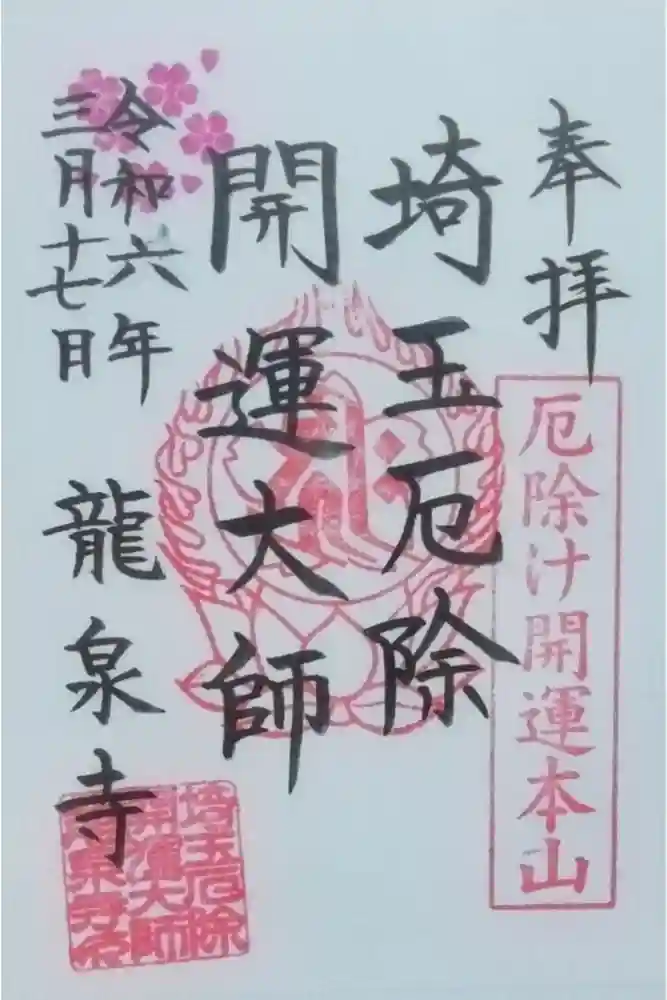 奉拝
厄除け開運本山
埼玉厄除
開運大師
令和六年
三月十七日
龍泉寺
埼玉厄除
開運大師
龍泉寺